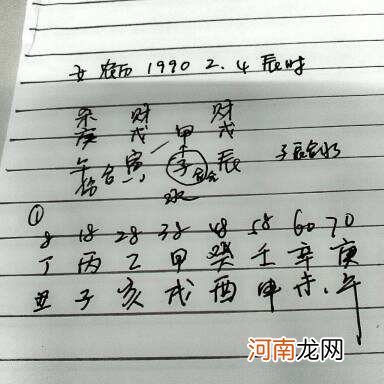 女 农历 1990 2.4 辰时
杀 财 财
庚 戊 甲 戊
午 寅 子 辰 子辰合水
拐合
水
①
8 18 28 38 48 58 60 70
丁 丙 乙 甲 癸 壬 辛 庚
丑 子 亥 戌 酉 申 未、午
河南龙网